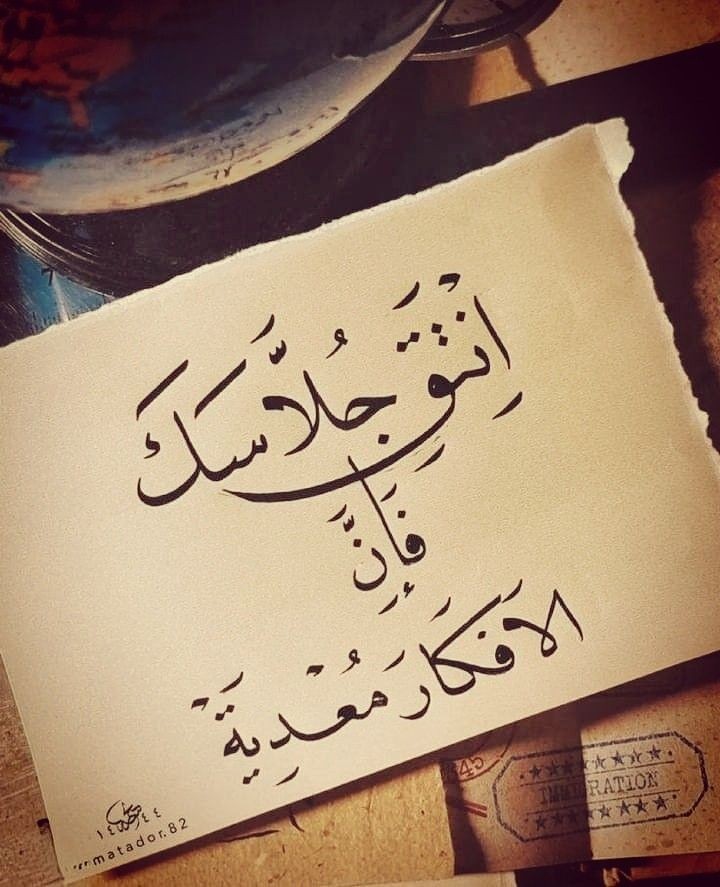 اِنْتَقِ جُلَّاسَكَ
فَإِنَّ
الاَفكَارَ مُعْدِيَةْ
١٤٤٤
matador.82
IMMIGRATION
345